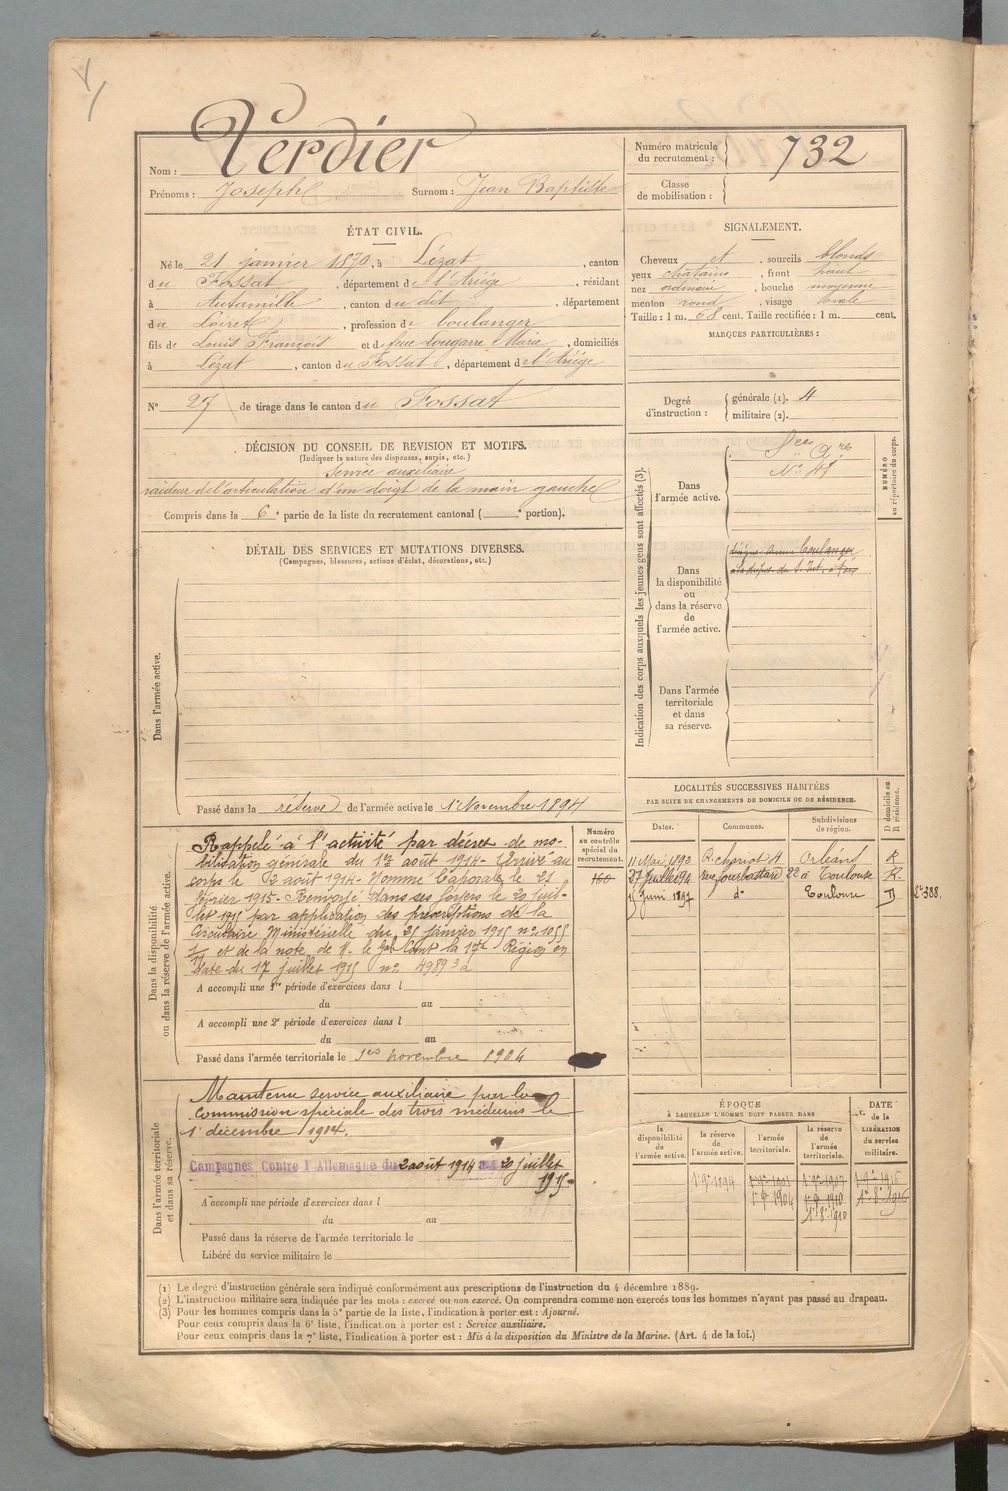 Verdier
Nom :
Prénoms : Joseph Surnom : Jean Baptiste
Numéro matricule
du recrutement : 732
Classe
de mobilisation :
ÉTAT CIVIL.
Né le 21 janvier 1870, à Lézat, canton
du Fossat, département de l'Ariège, résidant
à, canton du dit, département
du Loiret, profession de boulanger
fils de Louis François et de feue Marie, domiciliés
à Lézat, canton du Fossat, département de l'Ariège
N° 27 de tirage dans le canton du Fossat
SIGNALEMENT.
Cheveux et, sourcils blonds
yeux chatains, front haut
nez ordinaire, bouche moyenne
menton rond, visage ovale
Taille : 1 m. 68 cent. Taille rectifiée : 1 m. cent.
MARQUES PARTICULIÈRES :
Degré
d'instruction :
générale (1). 4
militaire (2).
DÉCISION DU CONSEIL DE REVISION ET MOTIFS.
(Indiquer la nature des dispenses, sursis, etc.)
Service auxiliaire
raideur de l'articulation d'un doigt de la main gauche
Compris dans la 6e partie de la liste du recrutement cantonal ( e portion).
DÉTAIL DES SERVICES ET MUTATIONS DIVERSES.
(Campagnes, blessures, actions d'éclat, décorations, etc.)
Dans l'armée active.
Passé dans la réserve de l'armée active le 1er Novembre 1894
Indication des corps auxquels les jeunes gens sont affectés (3).
NUMÉRO
au répertoire du corps.
Dans
l'armée active.
Dans
la disponibilité
ou
dans la réserve
de
l'armée active.
Boulanger
Dans l'armée
territoriale
et dans
sa réserve.
Dans la disponibilité
ou dans la réserve de l'armée active.
Rappelé à l'activité par décret de mo-
bilisation générale du 1er août 1914 - Arrivé au
corps le 2 août 1914 - Nommé Caporal le 21
février 1915 - Renvoyé dans ses foyers le 20 juil-
let 1915 par application des prescriptions de la
Circulaire Ministérielle du 25 janvier 1915 n° 1055
et de la note de M. le Gal Cdant la 17e Région en
date du 17 juillet 1915 n° 4989 3a
Numéro
au contrôle
spécial du
recrutement.
160
A accompli une 1re période d'exercices dans l
du au
A accompli une 2e période d'exercices dans l
du au
Passé dans l'armée territoriale le 1er novembre 1904
LOCALITÉS SUCCESSIVES HABITÉES
PAR SUITE DE CHANGEMENTS DE DOMICILE OU DE RÉSIDENCE.
Dates. Communes. Subdivisions
de région.
D domicile ou
R résidence.
11 Mai 1893 Orléans R
27 Juillet 1894 rue fourbastard 22 à Toulouse R
15 Juin 1897 do Toulouse D
Dans l'armée territoriale
et dans sa réserve.
Maintenu service auxiliaire par la
commission spéciale des trois médecins le
1 décembre 1914.
Campagnes Contre l'Allemagne du 2 août 1914 au 20 juillet
1915
A accompli une période d'exercices dans l
du au
Passé dans la réserve de l'armée territoriale le
Libéré du service militaire le
ÉPOQUE
À LAQUELLE L'HOMME DOIT PASSER DANS
DATE
de la
LIBÉRATION
du service
militaire.
la
disponibilité
de
l'armée active.
la réserve
de
l'armée active.
l'armée
territoriale.
la réserve
de
l'armée
territoriale.
1 9bre 1894
1 9bre 1904 1 9bre 1910
1 8bre 1910
1 8bre 1916
(1) Le degré d'instruction générale sera indiqué conformément aux prescriptions de l'instruction du 4 décembre 1889.
(2) L'instruction militaire sera indiquée par les mots : exercé ou non exercé. On comprendra comme non exercés tous les hommes n'ayant pas passé au drapeau.
(3) Pour les hommes compris dans la 5e partie de la liste, l'indication à porter est : Ajourné.
Pour ceux compris dans la 6e liste, l'indication à porter est : Service auxiliaire.
Pour ceux compris dans la 7e liste, l'indication à porter est : Mis à la disposition du Ministre de la Marine. (Art. 4 de la loi.)